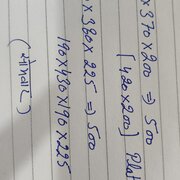 x 370 x 200 ⇒ 500
[420 x 200] Plat
x 380 x 225 ⇒ 500
190 x 430 x 190 x 225